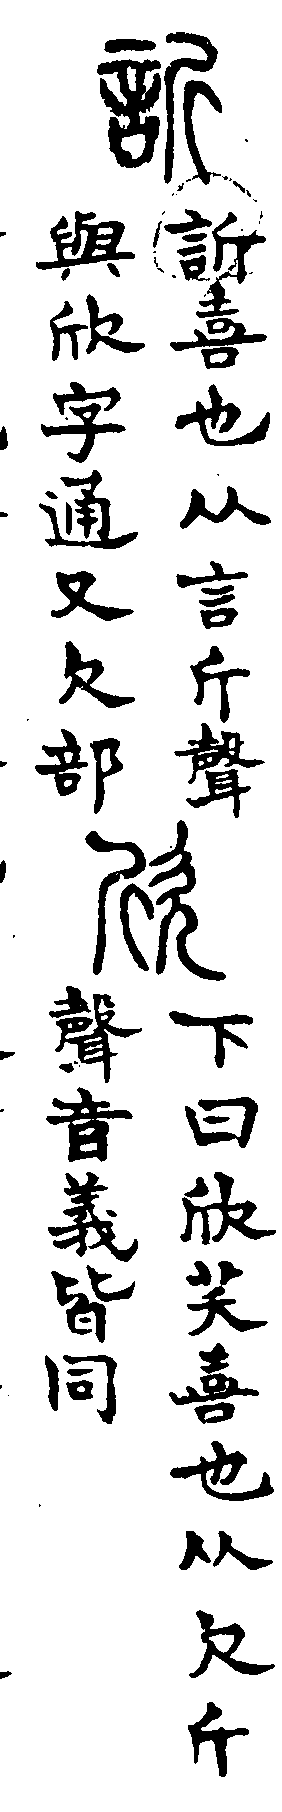 訢
訢喜也从言斤聲
與欣字通又欠部
欣
下曰欣笑喜也从欠斤
聲音義皆同